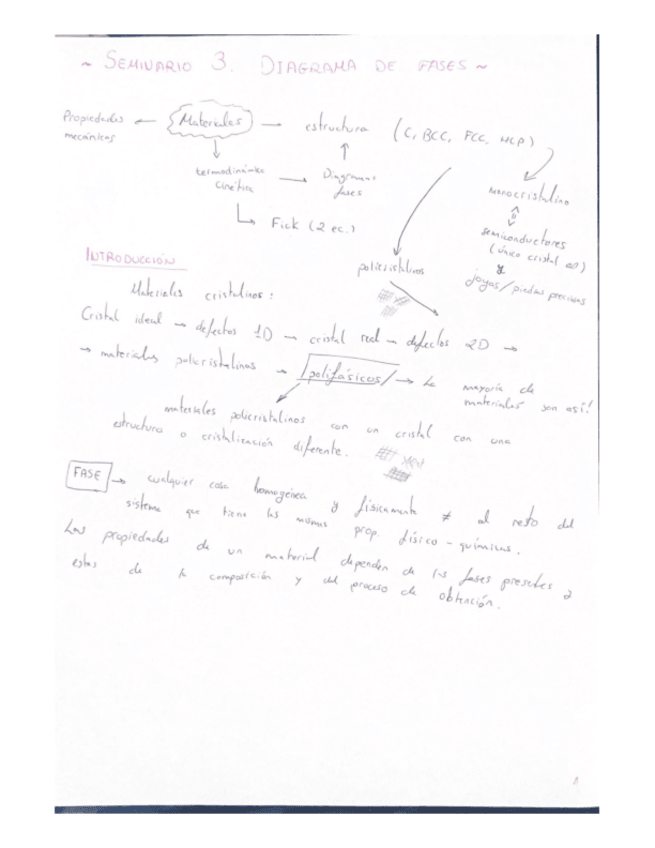 ~ SEMINARIO 3. DIAGRAMA DE FASES ~
Propiedades mecánicas ← Materiales — estructura (C, BCC, FCC, HCP)
termodinámica
cinética → Diagramas fases
monocristalino
Fick (2 ec.)
semiconductores
(único cristal ∞)
y
joyas/piedras preciosas
policristalinos
INTRODUCCIÓN
Materiales cristalinos:
Cristal ideal → defectos 1D → cristal real → defectos 2D →
→ materiales policristalinos → /polifásicos/ → La mayoría de
materiales son así!
materiales policristalinos con un cristal con una
estructura o cristalización diferente.
FASE → cualquier cosa homogénea y físicamente ≠ al resto del
sistema que tiene las mismas prop. físico-químicas.
Las propiedades de un material dependen de las fases presentes
estas de la composición y del proceso de obtención.